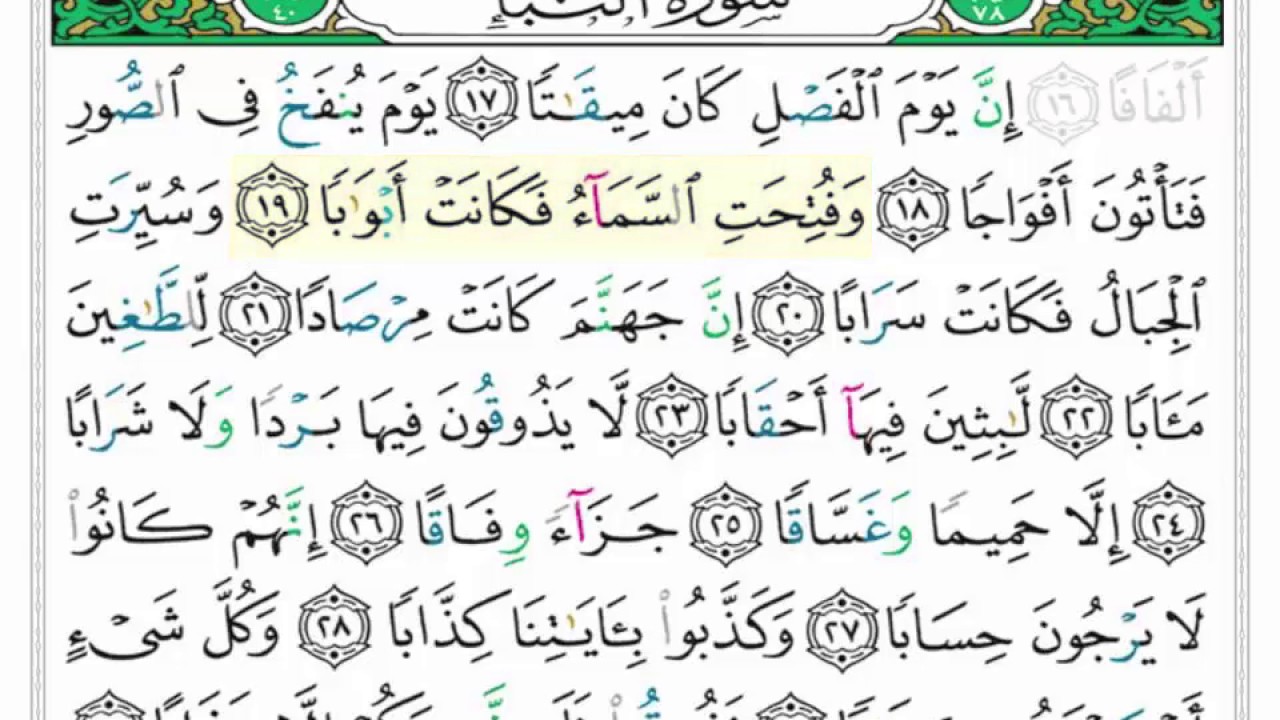 ٤٠ سورة النبإ ٧٨
أَلْفَافًا ١٦ إِنَّ يَوْمَ ٱلْفَصْلِ كَانَ مِيقَـٰتًا ١٧ يَوْمَ يُنفَخُ فِى ٱلصُّورِ
فَتَأْتُونَ أَفْوَاجًا ١٨ وَفُتِحَتِ ٱلسَّمَآءُ فَكَانَتْ أَبْوَٰبًا ١٩ وَسُيِّرَتِ
ٱلْجِبَالُ فَكَانَتْ سَرَابًا ٢٠ إِنَّ جَهَنَّمَ كَانَتْ مِرْصَادًا ٢١ لِّلطَّـٰغِينَ
مَـَٔابًا ٢٢ لَّـٰبِثِينَ فِيهَآ أَحْقَابًا ٢٣ لَّا يَذُوقُونَ فِيهَا بَرْدًا وَلَا شَرَابًا
٢٤ إِلَّا حَمِيمًا وَغَسَّاقًا ٢٥ جَزَآءً وِفَاقًا ٢٦ إِنَّهُمْ كَانُوا۟
لَا يَرْجُونَ حِسَابًا ٢٧ وَكَذَّبُوا۟ بِـَٔايَـٰتِنَا كِذَّابًا ٢٨ وَكُلَّ شَىْءٍ